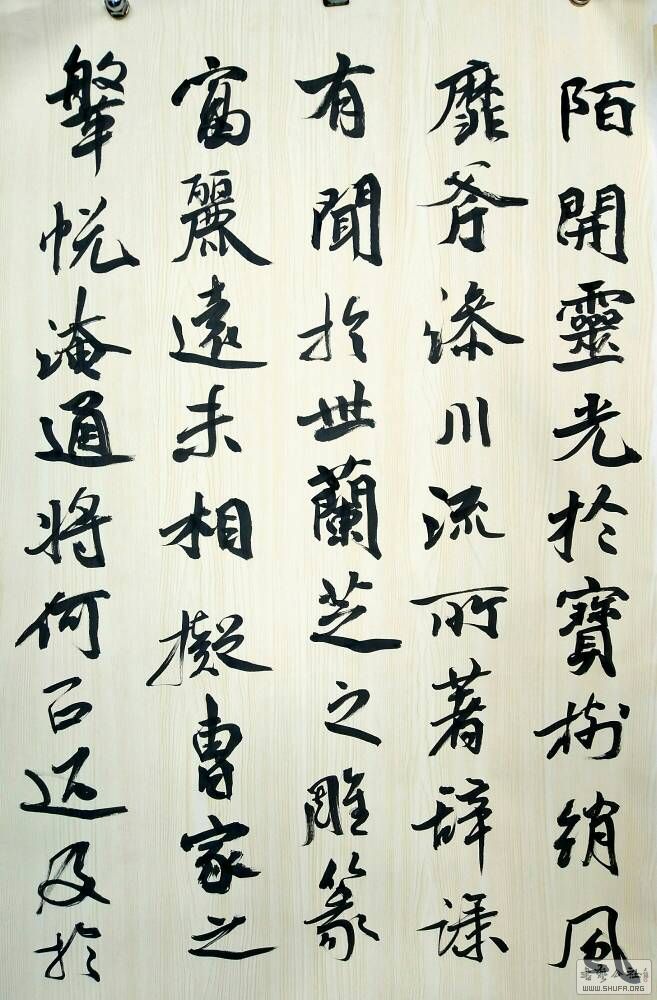 陌開靈光於寶樹銷風
靡斧漆川流所著辞
有聞於世蘭芝之雕篆
富麗遠未相擬曹家之
鞶帨淹通將何㠯及於
书法公社
WWW.SHUFA.ORG